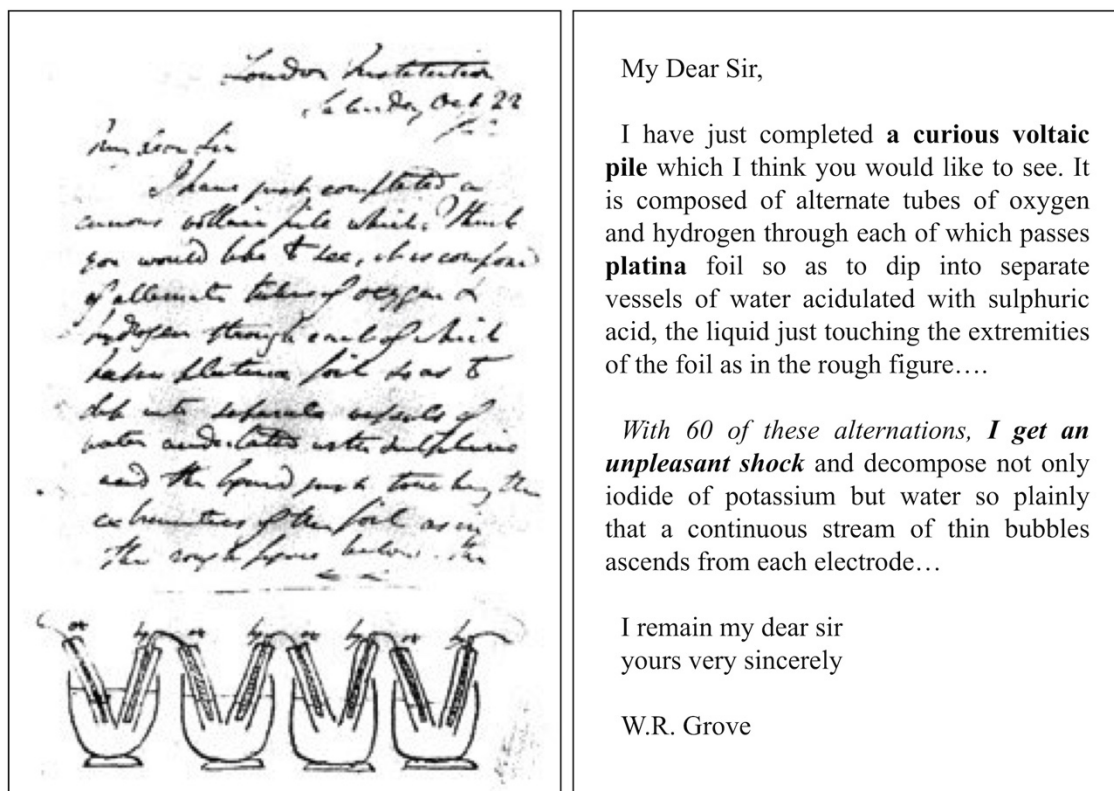 London Institution
Saturday Oct 22
My Dear Sir
I have just completed a
curious voltaic pile which I think
you would like to see, it is composed
of alternate tubes of oxygen &
hydrogen through each of which
passes platina foil so as to
dip into separate vessels of
water acidulated with sulphuric
acid the liquid just touching the
extremities of the foil as in
the rough figure below. the
ox hy ox hy ox hy ox hy
My Dear Sir,
I have just completed a curious voltaic
pile which I think you would like to see. It
is composed of alternate tubes of oxygen
and hydrogen through each of which passes
platina foil so as to dip into separate
vessels of water acidulated with sulphuric
acid, the liquid just touching the extremities
of the foil as in the rough figure….
With 60 of these alternations, I get an
unpleasant shock and decompose not only
iodide of potassium but water so plainly
that a continuous stream of thin bubbles
ascends from each electrode…
I remain my dear sir
yours very sincerely
W.R. Grove